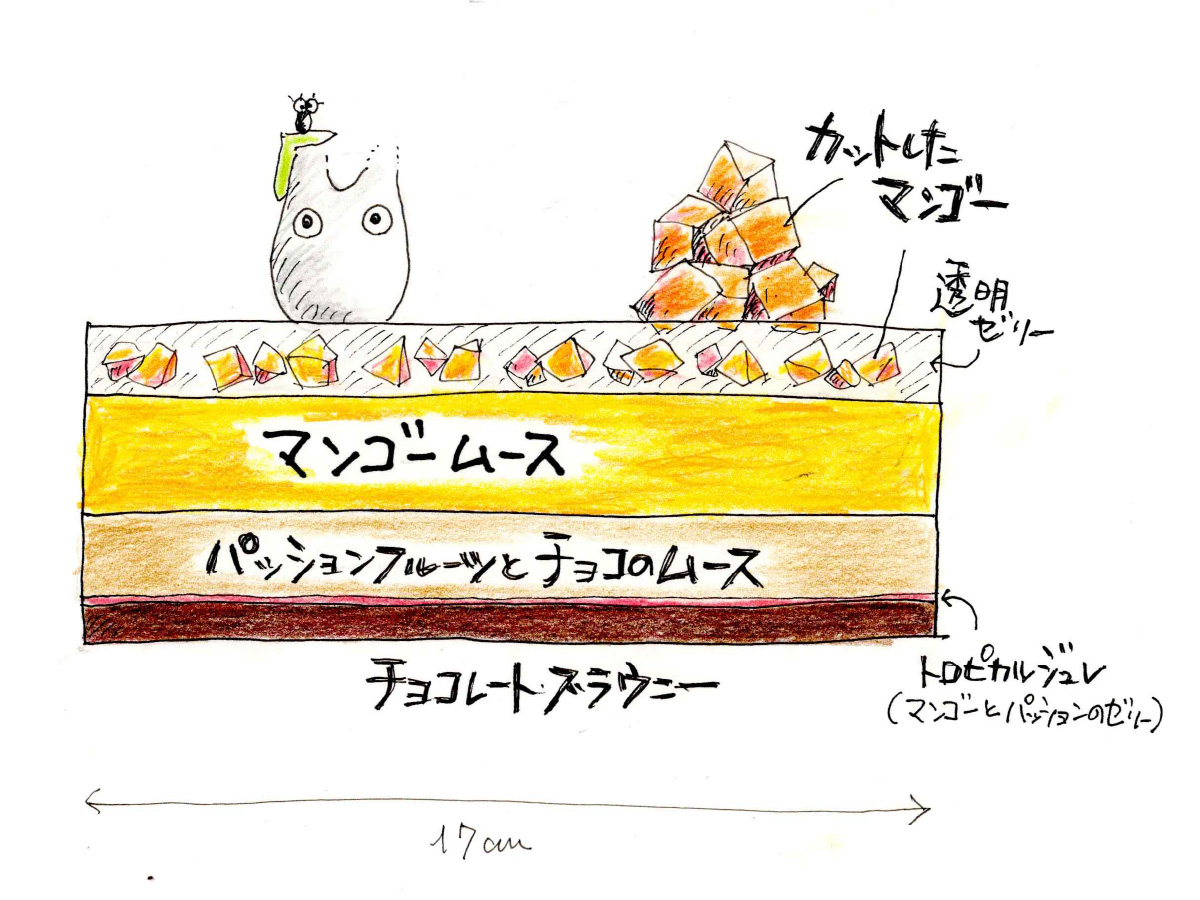 カットした
マンゴー
透明
ゼリー
マンゴームース
パッションフルーツとチョコのムース
チョコレート・ブラウニー
トロピカルジュレ
(マンゴーとパッションのゼリー)
17cm